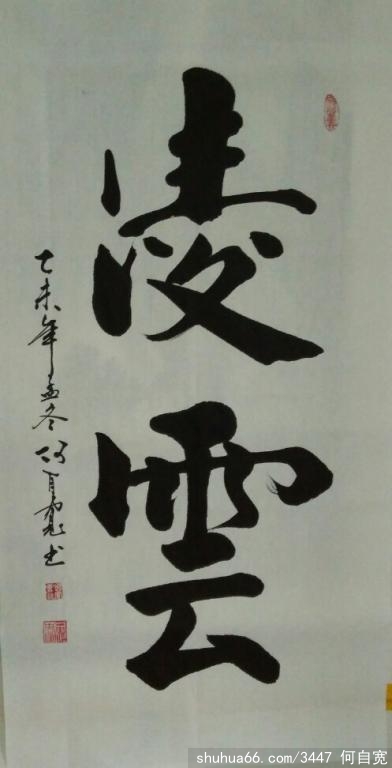 凌雲
乙未年孟冬何自宽书
shuhua66.com/3447 何自宽